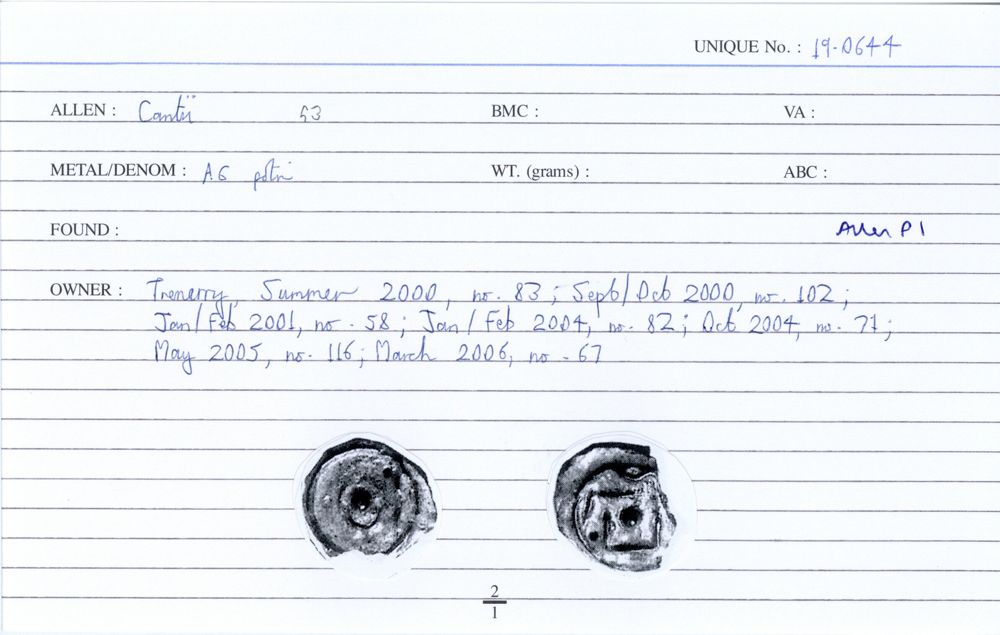 UNIQUE No. : 19-0644
ALLEN : Cantii 53 BMC : VA :
METAL/DENOM : AG potin WT. (grams) : ABC :
FOUND : Allen P1
OWNER : Trenerry, Summer 2000, no. 83 ; Sept/Oct 2000, no. 102 ;
Jan/Feb 2001, no. 58 ; Jan/Feb 2004, no. 82 ; Oct 2004, no. 71 ;
May 2005, no. 116 ; March 2006, no. 67
2
1